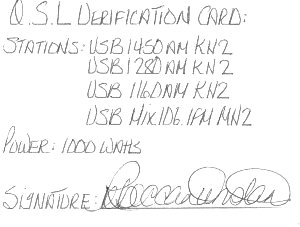 Q.S.L VERIFICATION CARD:
STATIONS: USB 1450 AM KNZ
USB 1280 AM KNZ
USB 1160 AM KNZ
USB MIX 106.1 FM MNZ
POWER: 1000 WATTS
SIGNATURE: